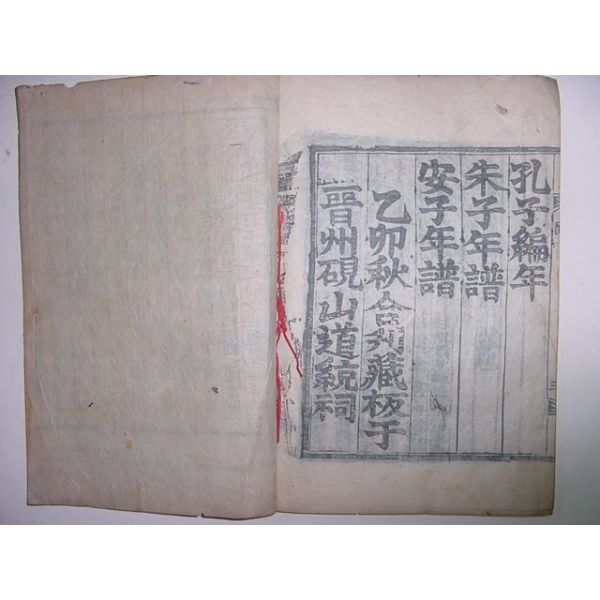 孔子編年
朱子年譜
安子年譜
乙卯秋合刋藏板于
晋州硯山道統祠